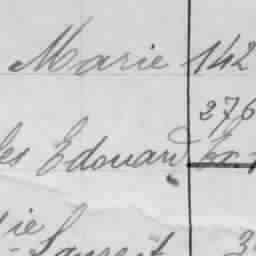 Marie 142
276
les Edouard
ie
Laurent 3